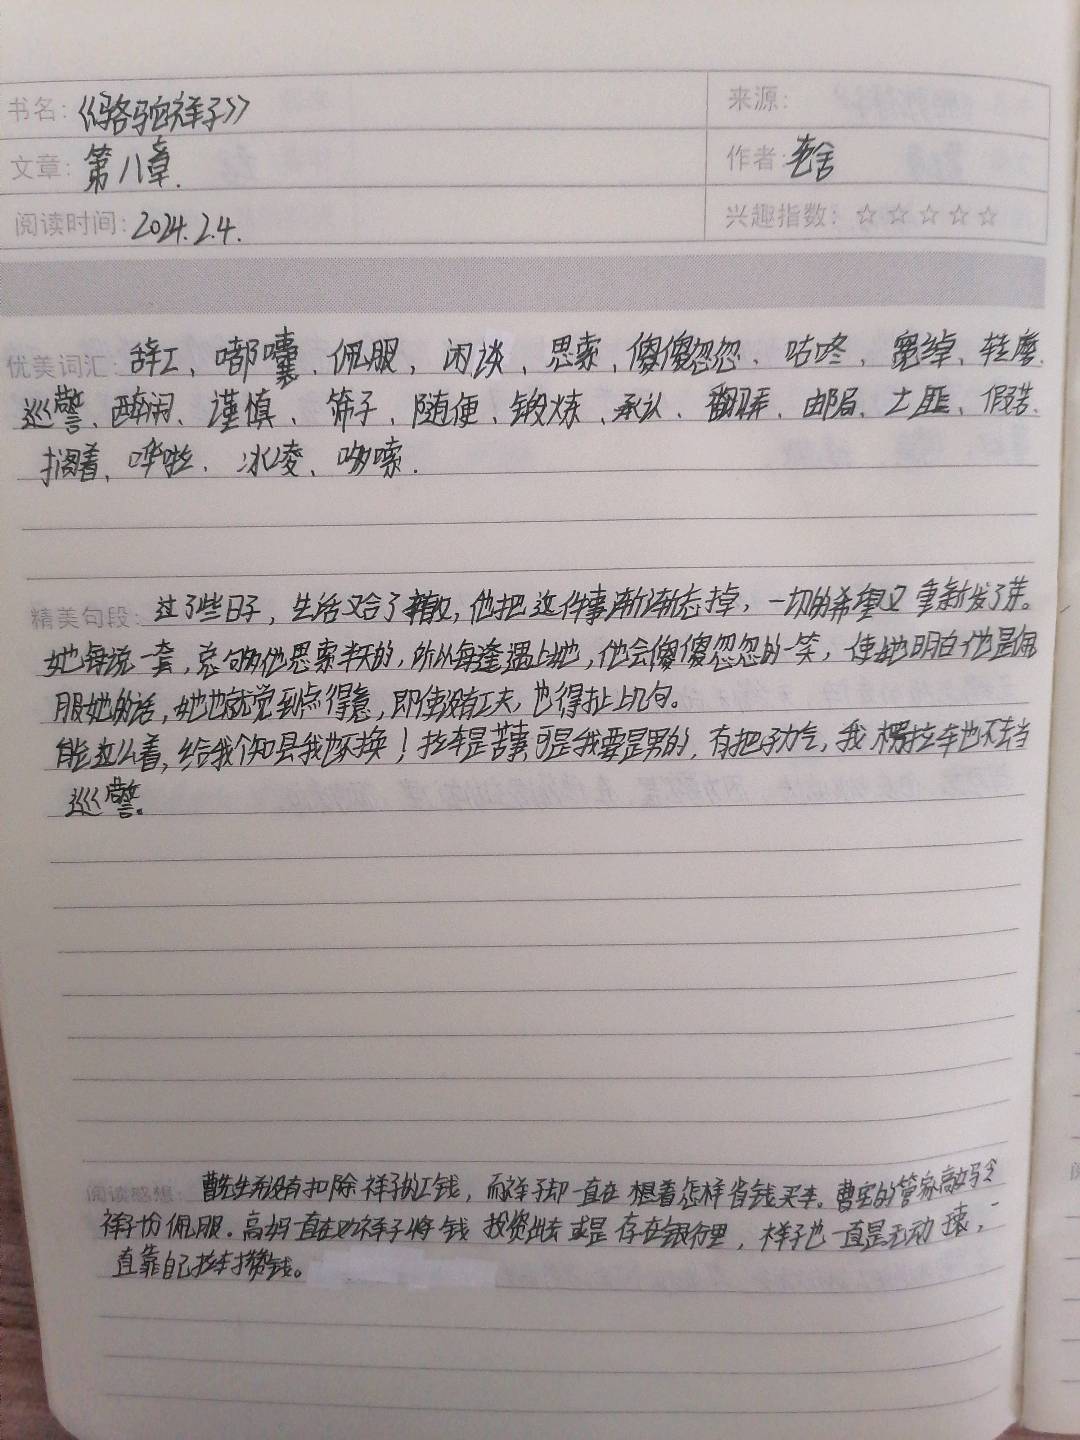 书名：《骆驼祥子》 来源：
文章：第八章. 作者：老舍
阅读时间：2024.2.4. 兴趣指数：☆☆☆☆☆
优美词汇：辞工、嘟囔、佩服、闲谈、思索、傻傻忽忽、咕咚、宽绰、轻蔑、
巡警、醉闹、谨慎、筛子、随便、锻炼、承认、翻弄、邮局、土匪、假若、
搁着、哗啦、冰凌、哆嗦.
精美句段：过了些日子，生活又合了辙，他把这件事渐渐忘掉，一切的希望又重新发了芽。
她每说一套，总够他思索半天的，所以每逢遇上她，他会傻傻忽忽的一笑，使她明白他是佩
服她的话，她也就觉到点得意，即使没有工夫，也得扯上几句。
能这么着，给我个知县我也不换！拉车是苦事，可是我要是男的，有把子力气，我楞拉车也不去当
巡警。
阅读感想：曹先生希没有扣除祥子的工钱，而祥子却一直在想着怎样省钱买车。曹宅的管家高妈令
祥子份佩服．高妈一直在劝祥子将钱投资出去或是存在银行里，祥子也一直是无动 衷，一
直靠自己拉车攒钱。